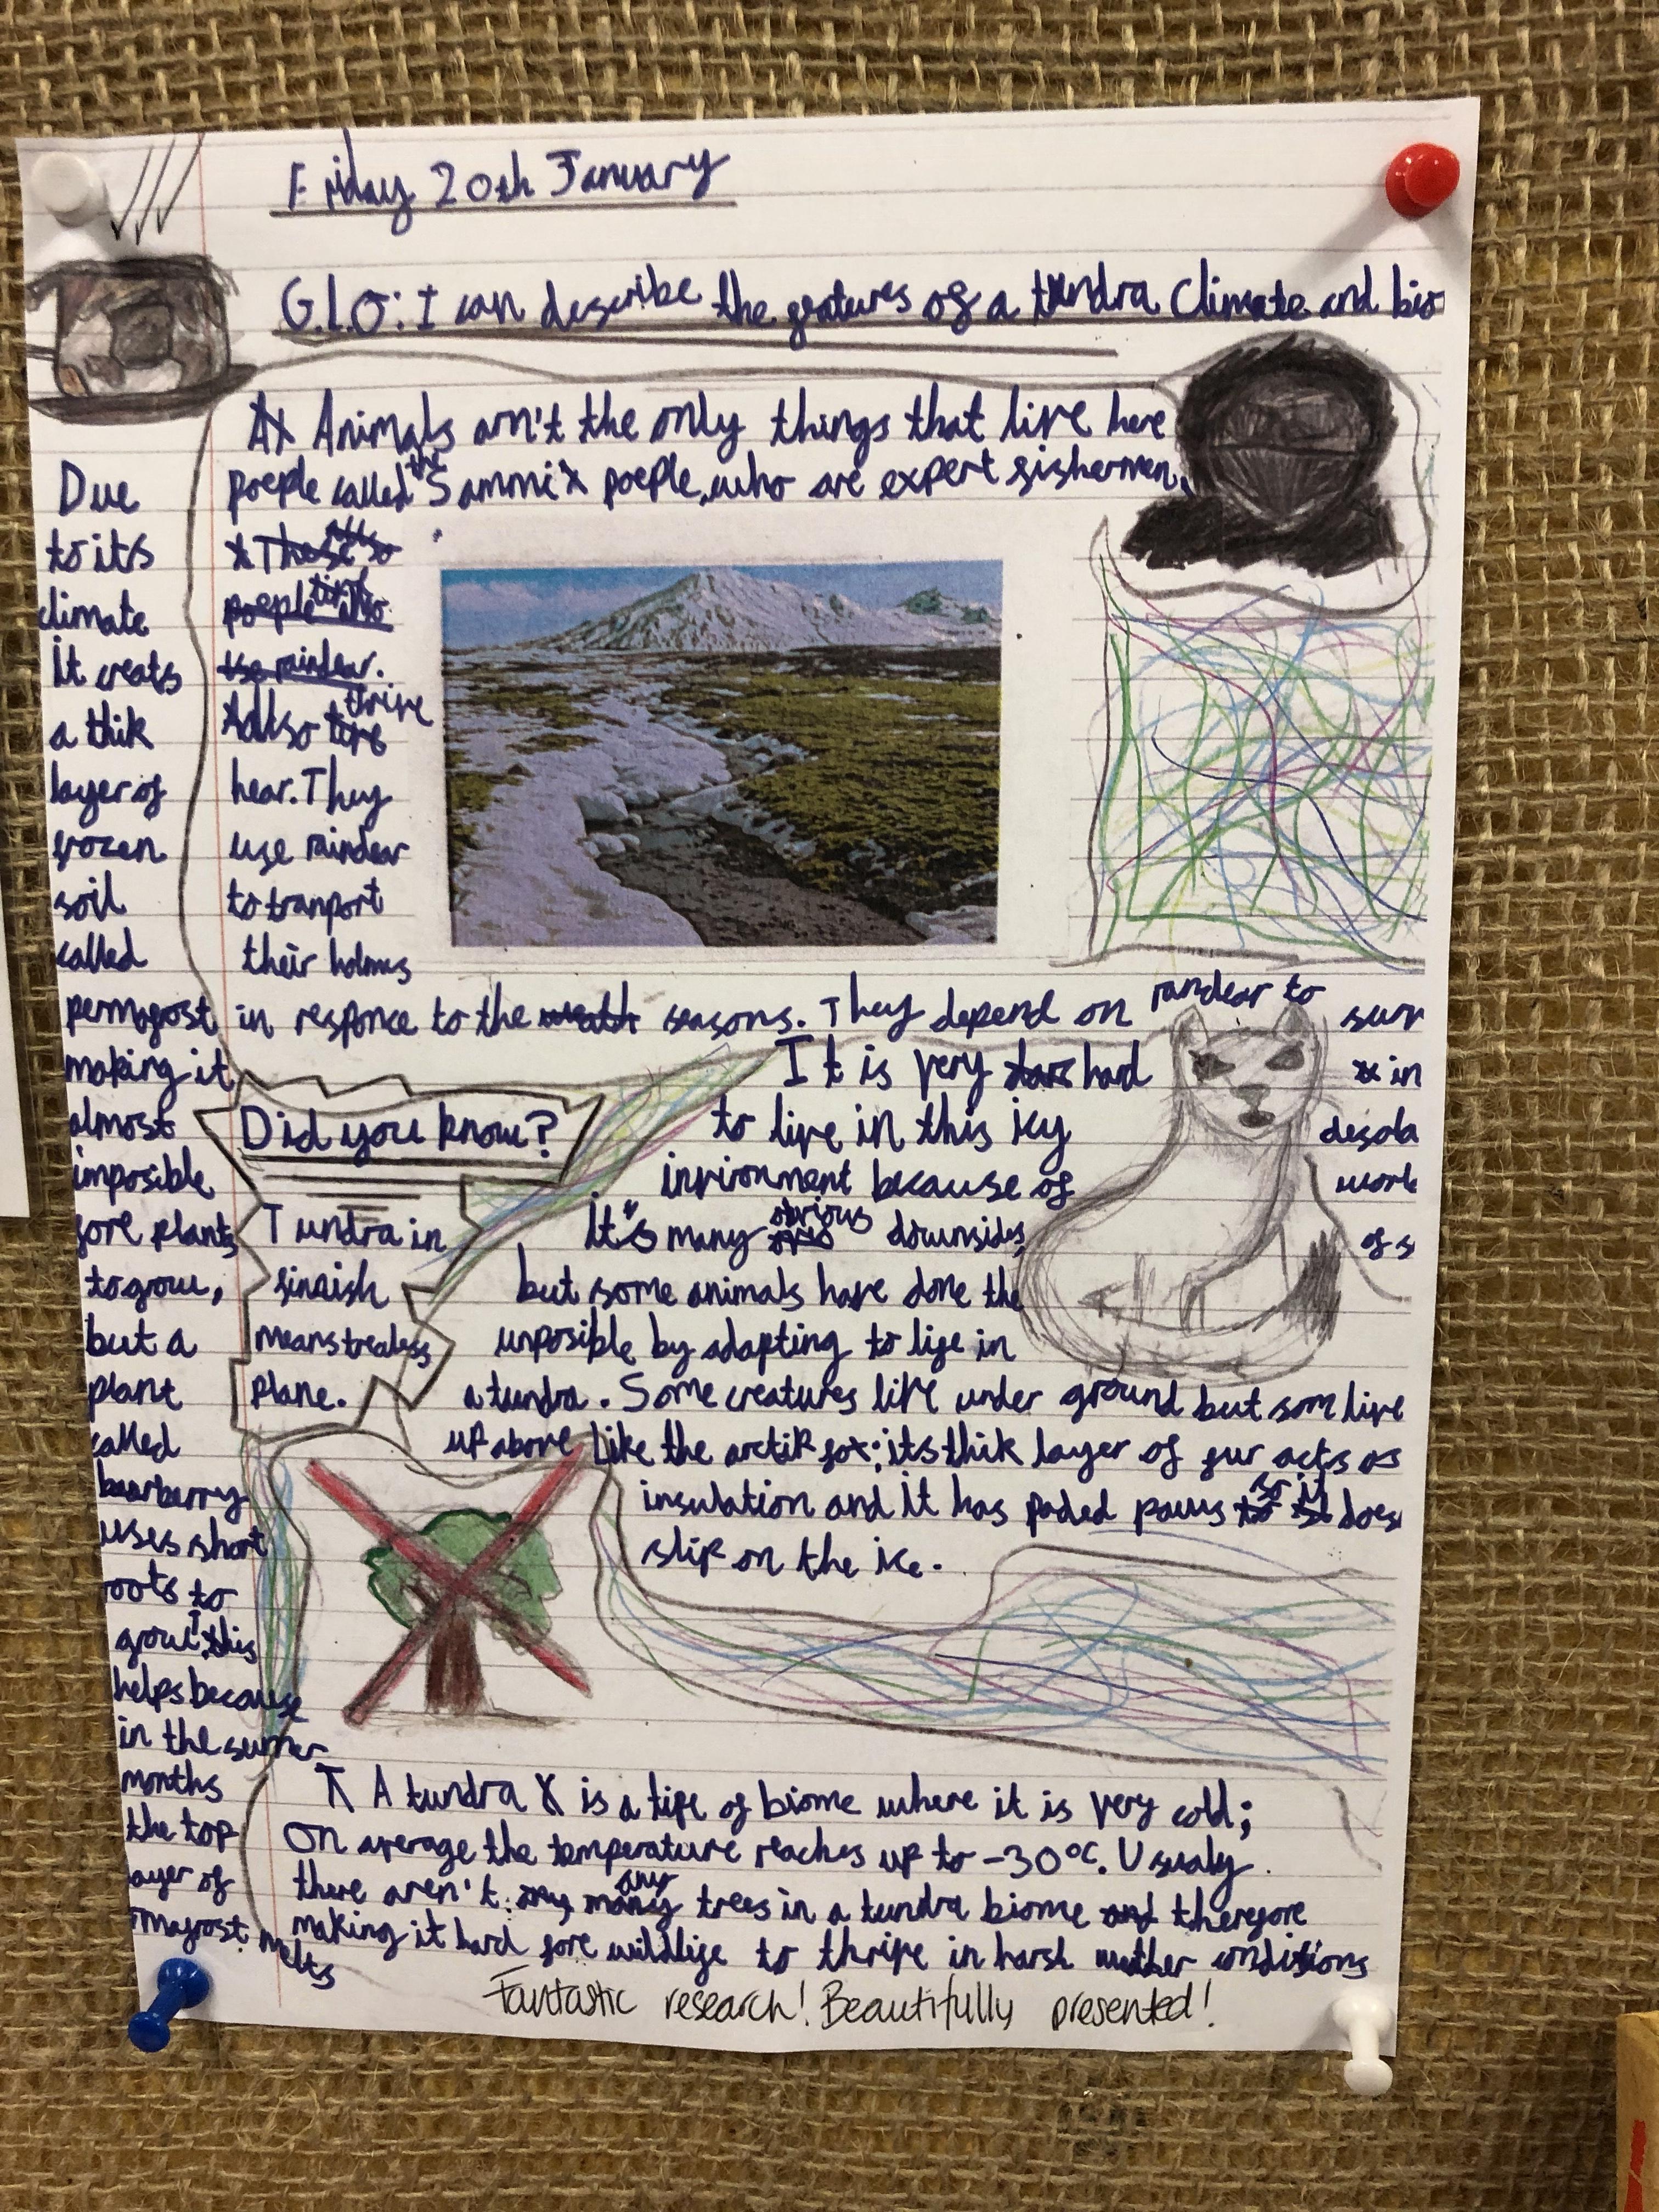 Friday 20th January
G.L.O: I can describe the features of a tundra climate and bio
Animals arn't the only things that live here
poeple called the Sammi poeple, who are expert fishermen,
Allso thrive
hear. They
use raindear
to tranport
their holmes
in responce to the seasons. They depend on randear to surv
Due
to its
climate
it creats
a thik
layer of
frozen
soil
called
permafrost
making it
almost
imposible
fore plants
to grow,
but a
plant
called
bearberry
uses short
roots to
grow, this
helps because
in the summer
months
the top
layer of
rmafrost melts
Did you know?
Tundra in
finish
means trealess
plane.
It is very hard
to live in this icy
invironment because of
it's many obvious downsides,
but some animals have done the
unposible by adapting to life in
a tundra. Some creatures live under ground but som live
up above like the arctik fox; its thik layer of fur acts as
insulation and it has paded paws so it does
slip on the ice.
in
desola
work
of s
A tundra is a tipe of biome where it is very cold;
On average the temperature reaches up to -30°C. Usualy
there aren't any trees in a tundra biome therefore
making it hard fore wildlife to thrive in harsh weather conditions
Fantastic research! Beautifully presented!